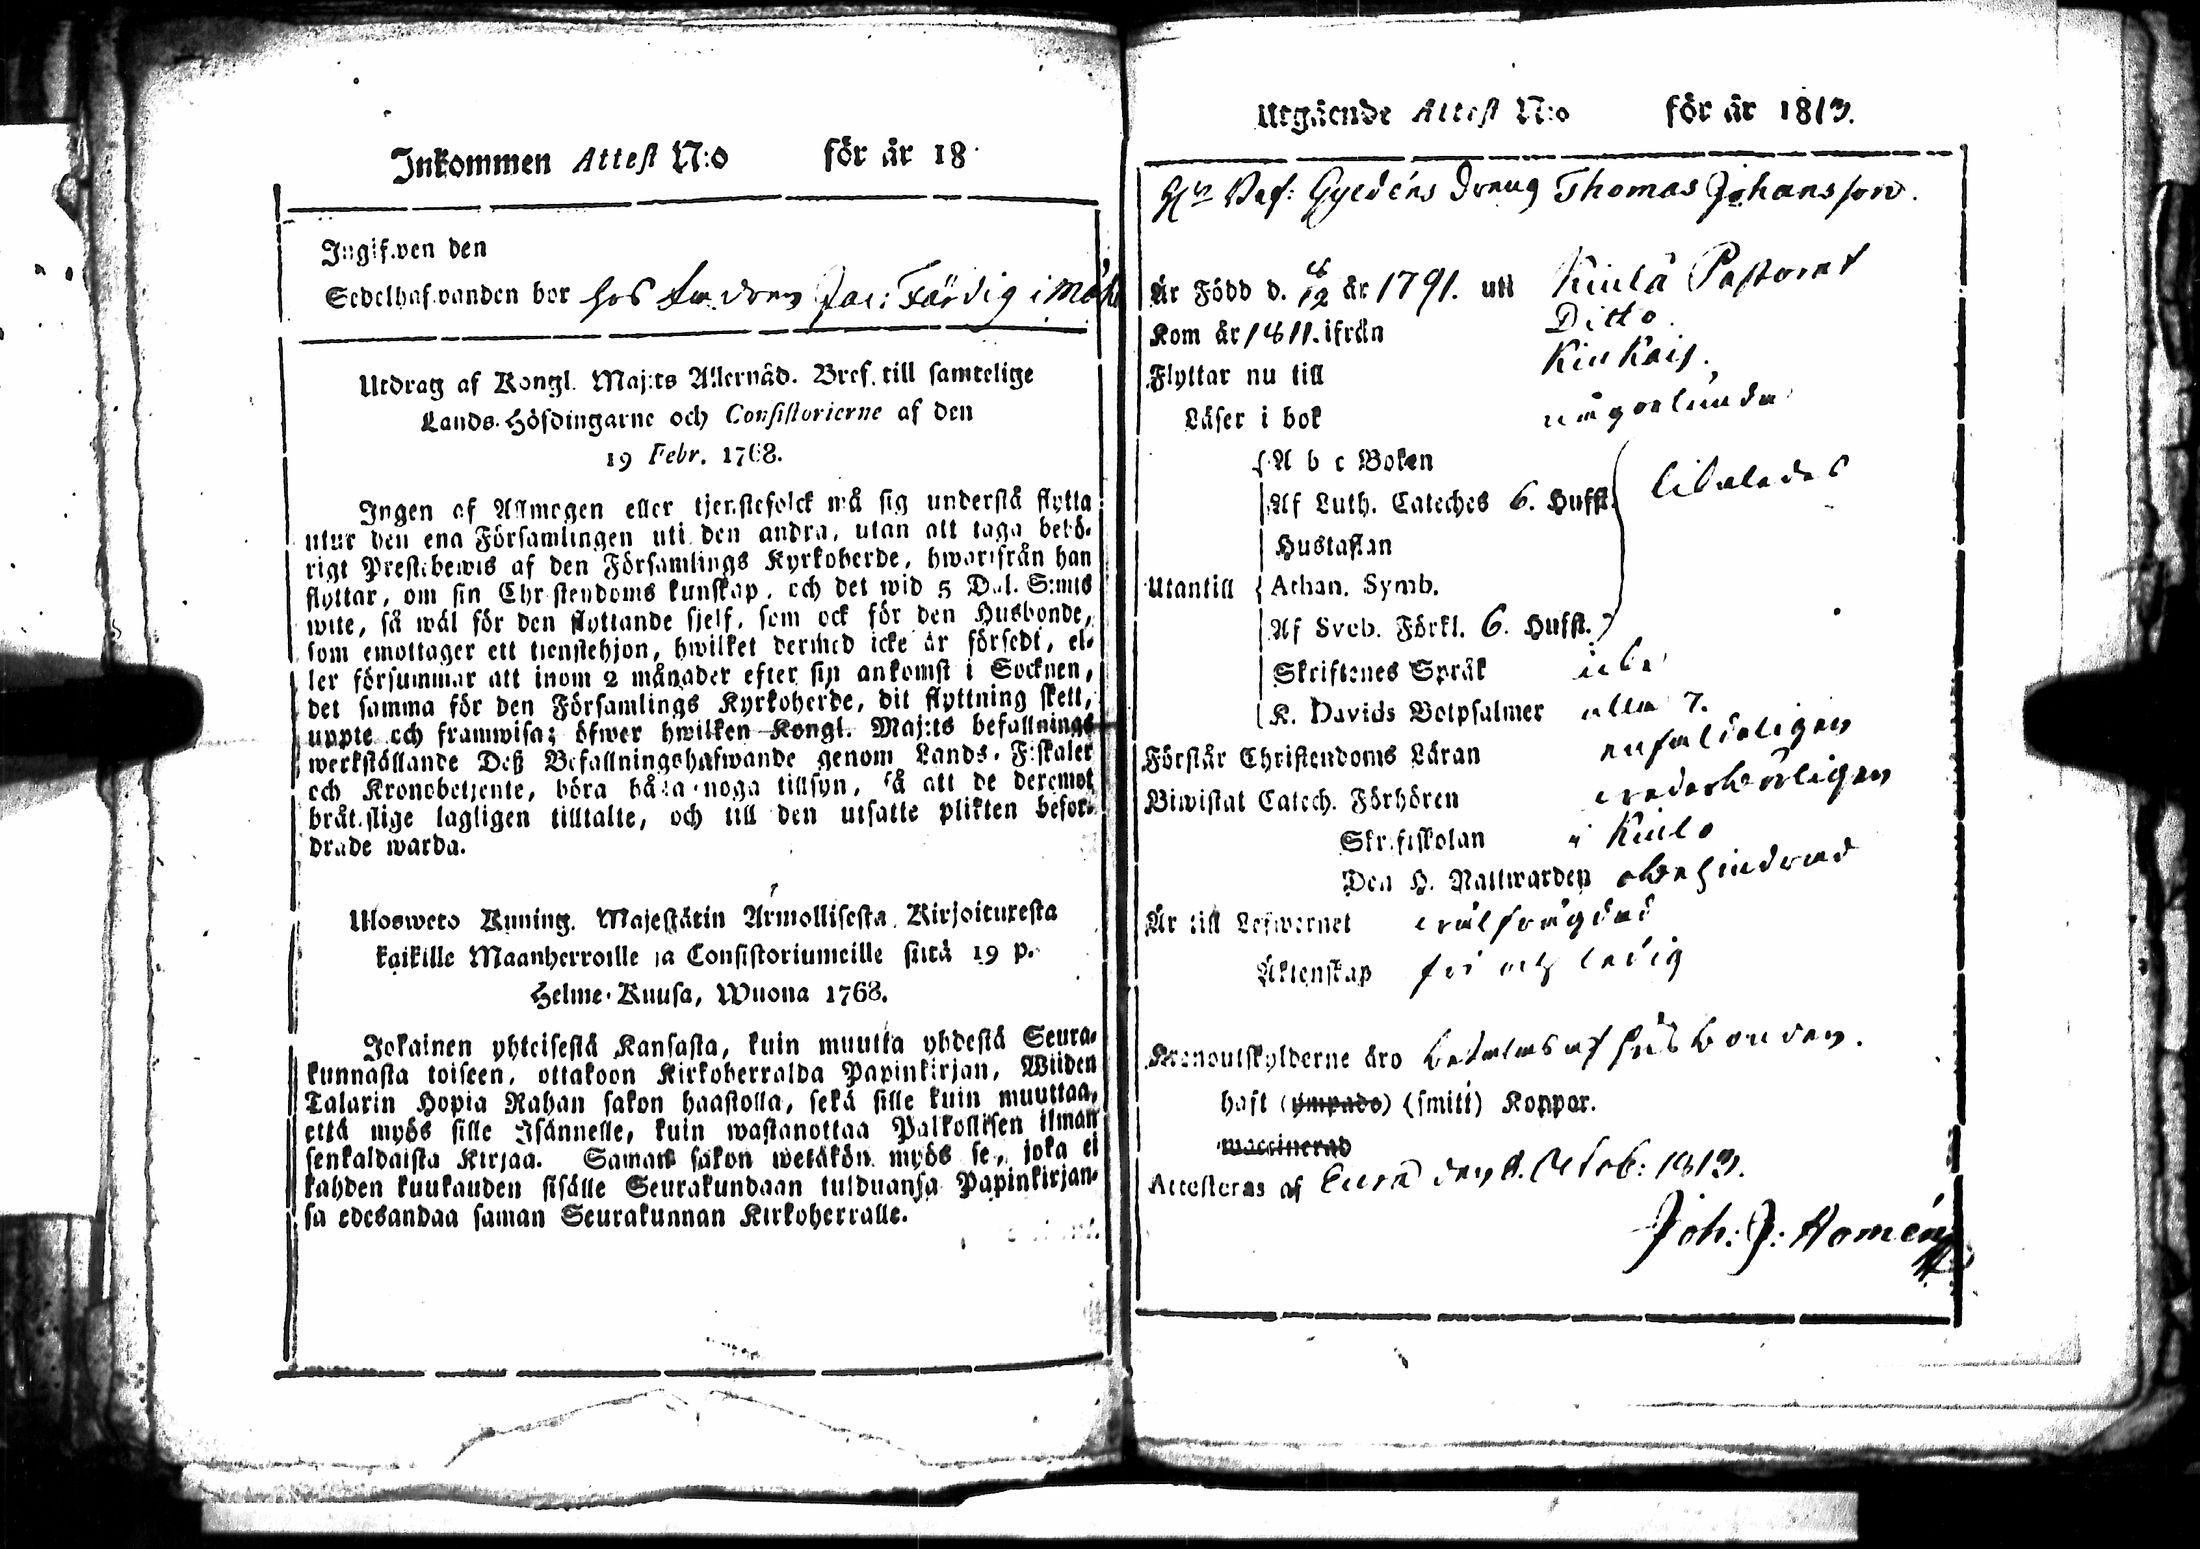 Inkommen Attest N:o för år 18
Ingifwen den
Sedelhafwanden bor hos Jac: Färdig i
Utdrag af Kongl. Maj:ts Allernåd. Bref till samtelige
Lands-Höfdingarne och Consistorierne af den
19 Febr. 1768.
Ingen af Allmogen eller tjenstefolck må sig understå flytta
utur den ena Församlingen uti den andra, utan att taga behö-
rigt Prestebewis af den Församlings Kyrkoherde, hwarifrån han
flyttar, om sin Christendoms kunskap, och det wid 5 Dal. S:mts
wite, så wäl för den flyttande sjelf, som ock för den Husbonde,
som emottager ett tienstehjon, hwilket dermed icke är försedt, el-
ler försummar att inom 2 månader efter sin ankomst i Socknen,
det samma för den Församlings Kyrkoherde, dit flyttning skett,
uppte och framwisa; öfwer hwilken Kongl. Maj:ts befallnings
werkställande Deß Befallningshafwande genom Lands-Fiskaler
och Kronobetjente, böra hafwa noga tillsyn, så att de deremot
bråtslige lagligen tilltalte, och till den utsatte plikten befor-
drade warda.
Ulosweto Kuning. Majestätin Armollisesta Kirjoituxesta
kaikille Maanherroille ja Consistoriumeille siitä 19 p.
Helme-Kuusa, Wuona 1768.
Jokainen yhteisestä Kansasta, kuin muutta yhdestä Seura-
kunnasta toiseen, ottakoon Kirkoherralda Papinkirjan, Wiiden
Talarin Hopia Rahan sakon haastolla, sekä sille kuin muuttaa,
että myös sille Isännelle, kuin wastanottaa Palkollisen ilman
senkaldaista Kirjaa. Saman sakon wetäkön myös se, joka ei
kahden kuukauden sisälle Seurakundaan tulduansa Papinkirjan-
sa edesandaa saman Seurakunnan Kirkoherralle.
Utgående Attest N:o för år 1813.
Gyldéns Dreng Thomas Johansson.
Är Född d. 12 år 1791. uti Kiulä Pastorat
Kom år 1811. ifrån Ditto.
Flyttar nu till Kiukais.
Läser i bok någorlunda
A b c Boken
Af Luth. Cateches 6. Hufst.
Hustaflan
Utantill Athan. Symb.
Af Sveb. Förkl. 6. Hufst.
Skriftenes Språk
K. Davids Botpsalmer alla 7.
Förstår Christendoms Läran enfaldeligen
Biwistat Catech. Förhören wederbörligen
Skriftskolan i Kiulo
Den H. Nattwarden obehindrad
Är till Lefwernet wälfrägdad
Äktenskap fri och ledig
Kronoutskylderne äro betalas af husbonden.
haft (ympade) (smitt) Koppor.
waccinerad
Attesteras af Eura den 8. Octob: 1813.
Joh: J: Homén